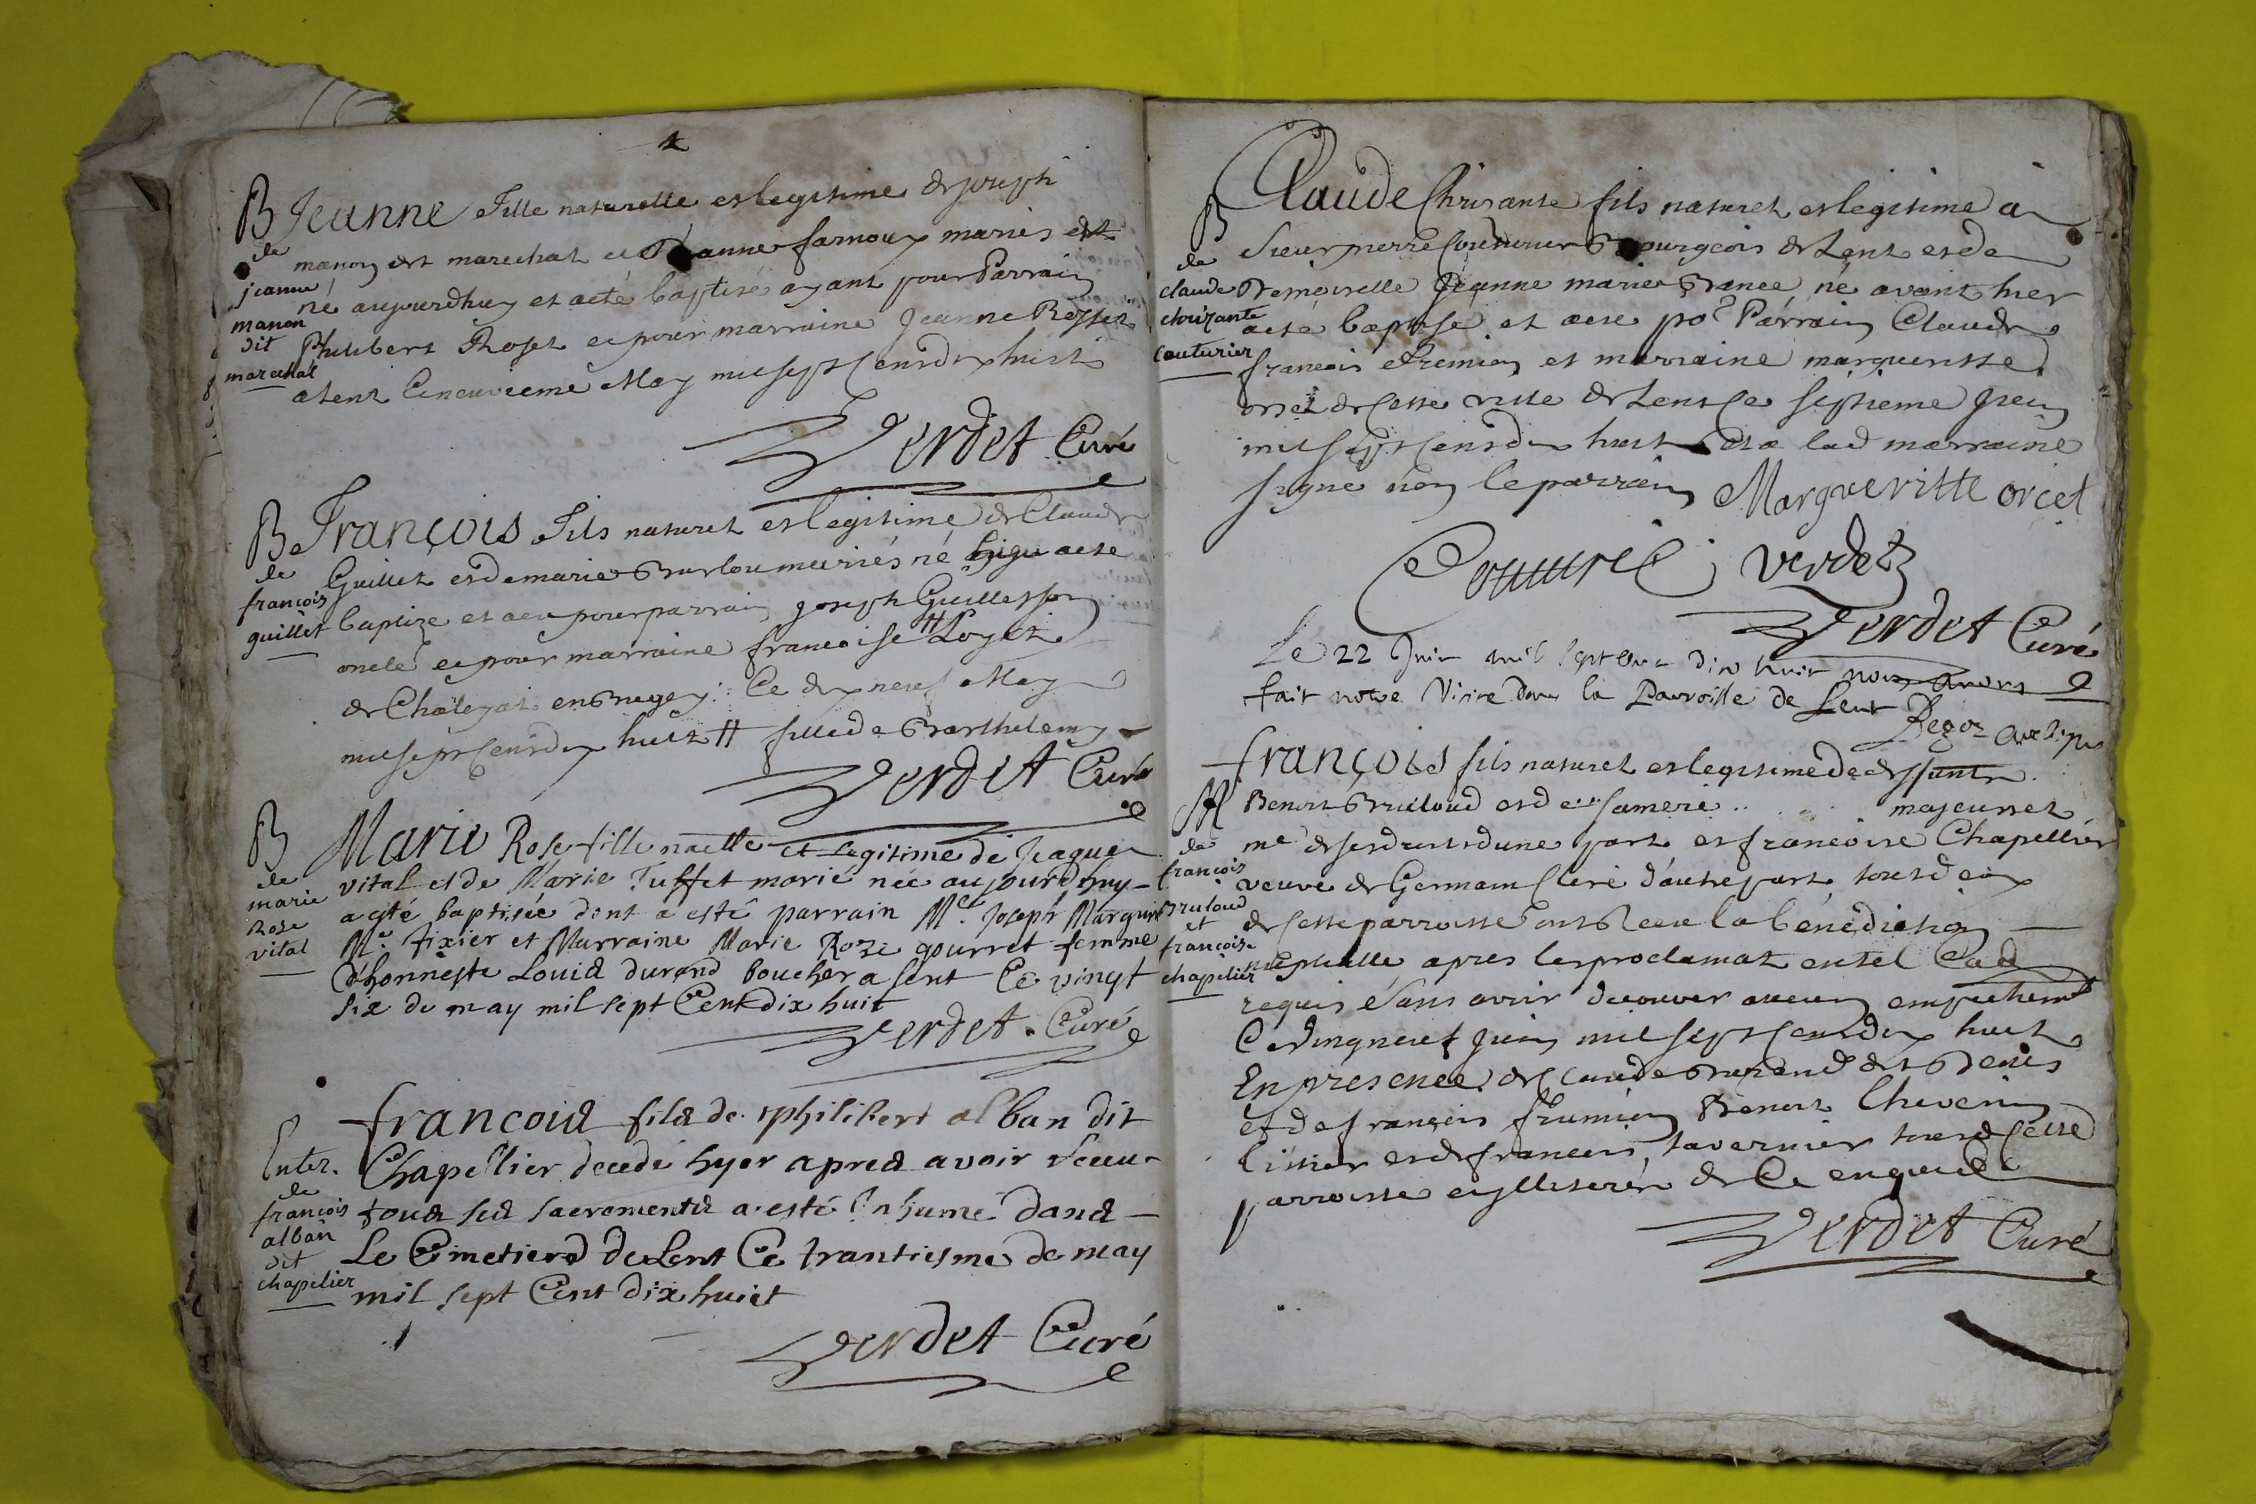 B
de
jeanne
manon
dit
marechal
Jeanne Fille naturelle et legitime de joseph
manon dit marechal et Jeanne farnoux mariés est
né aujourdhuy et a eté baptisé ayant pour Parrain
Philibert Roset et pour marraine Jeanne
a Lent Ce neuvieme May mil sept Cent dix huit
Verdet Curé
B
de
françois
guillet
François Fils naturel et legitime de Claude
Guillet et de marie mariés né a este
baptize et a eu pour parrain joseph Guillet son
oncle et pour marraine francoise # Loyet
de en Bugey. Ce dix neuf May
mil sept Cent dix huit # fille de Barthelemy
Verdet Curé
B
de
marie
Roze
vital
Marie Rose fille naelle et legitime de Jaque
vital et de Marie Tuffet marié née aujourdhuy
a esté baptisée dont a esté parrain Me. Joseph
Me fixier et Marraine Marie Roze gourret femme
d'honneste Louis durand boucher a Lent Ce vingt
six de may mil sept Cent dix huit
Verdet Curé
Enter.
de
françois
alban
dit
chapelier
francois fils de philibert alban dit
Chapellier decedé hyer apres avoir receu
tous ses sacrements a esté Inhumé dans
Le Cimetiere de Lent Ce trantiesme de may
mil sept Cent dix huict
Verdet Curé
B
de
claude
chrizante
couturier
Claude Chrisante fils naturel et legitime a
Sieur pierre Couturier Bourgeois de Lent et de
Demoiselle Jeanne marie né avant hier
a esté baptisé et a eu po.r Parrain Claude
francois fremion et marraine margueritte
orset de Cette ville de Lent Ce septieme Juin
mil sept Cent dix huit et a lad marraine
signé non le parrain Margueritte orcet
Couturier verdet
Verdet Curé
Le 22 Juin mil sept Cent dix huit nous avons
fait notre Visite dans la Parroisse de Lent
M
de
françois
Bruloud
et
françoise
chapelier
françois fils naturel et legitime de deffunt
Benoit Bruloud et de .. majeur et
me de ses droits d'une part et francoise Chapellier
veuve de Germain Clere d'autre part tous deux
de Cette parroisse ont Receu la bénédiction
nuptialle apres les proclamat en tel Cas
requis Sans avoir decouver aucun empechemt
Ce vingneuf Juin mil sept Cent dix huit
En presence de Claude dit
et de françois fremion Benoit Chevenin
tissier et de francois tavernier tous de Cette
parroisse de Ce enquis
Verdet Curé